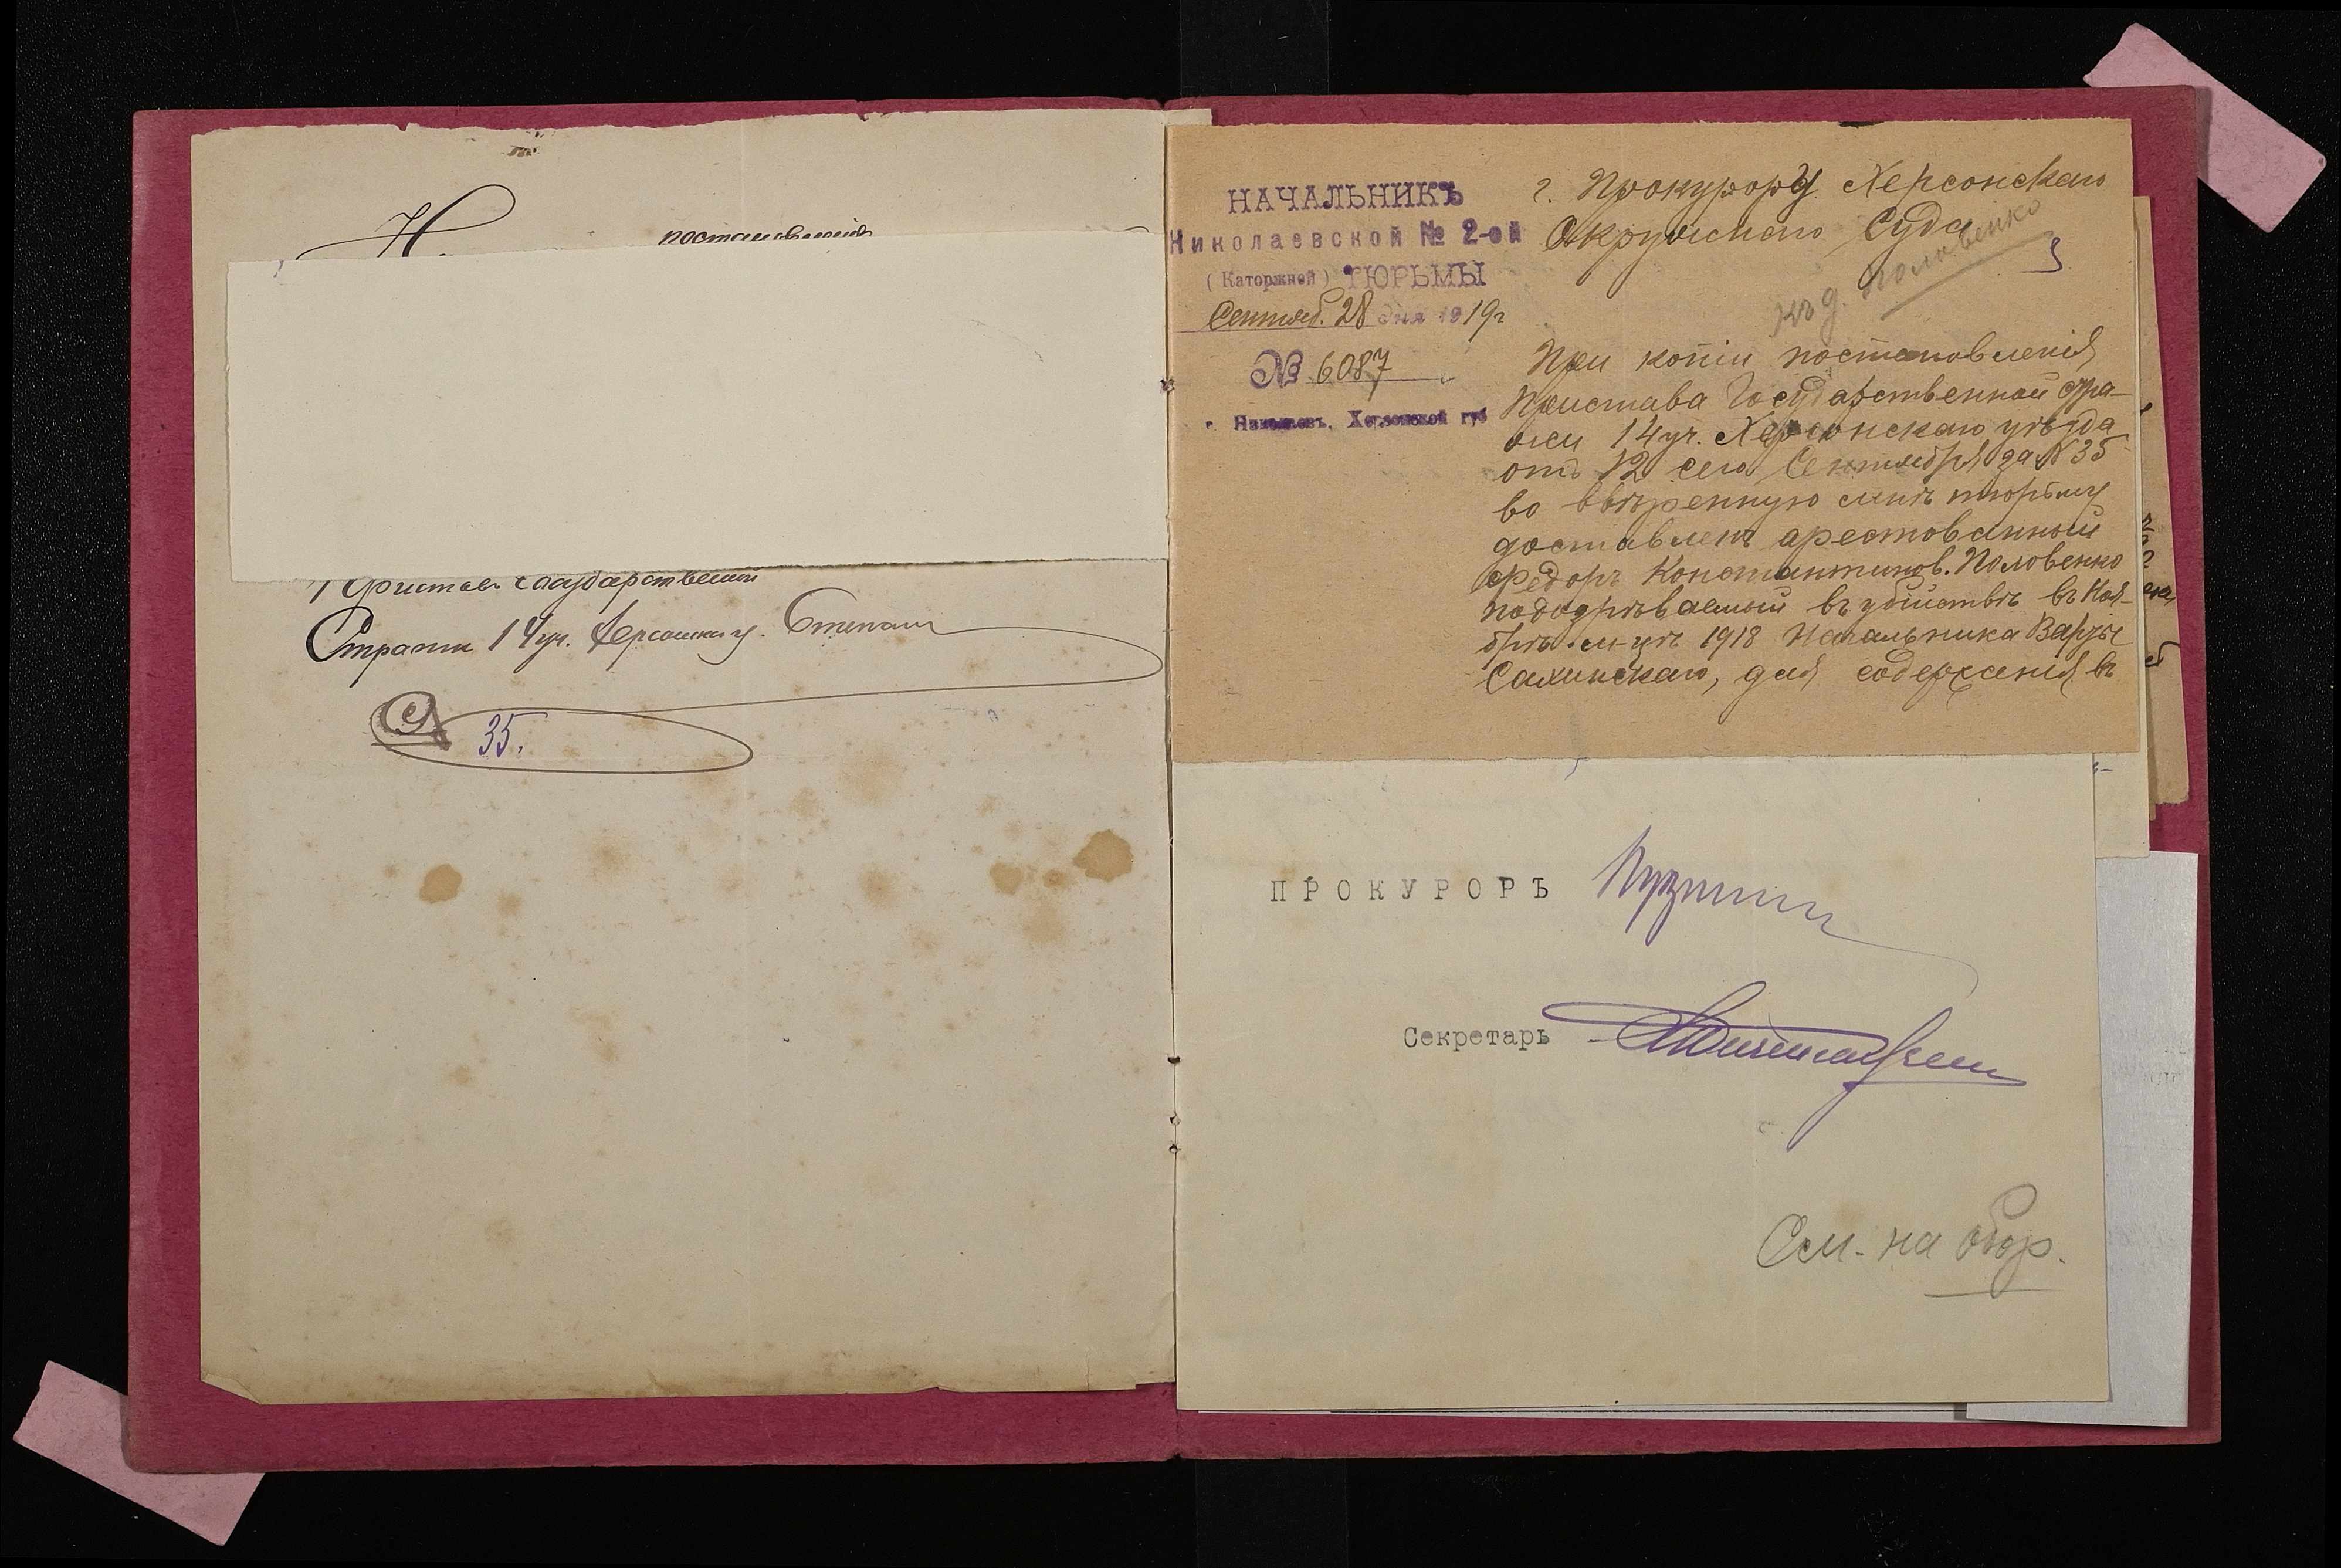 постановленія
Приставъ Государственной
Стражи 14 уч. Херсонск. у. Степан
35.
НАЧАЛЬНИКЪ
Николаевской № 2-ой
(Каторжной) ТЮРЬМЫ
Сентяб. 28 дня 1919г
№ 6087
г. Николаевъ, Херсонской губ
г. Прокурору Херсонскаго
Окружнаго Суда
къ д. Половенко
При копіи постановленія
Пристава Государственной стра-
жи 14 уч. Херсонскаго уѣзда
отъ 12 сего Сентября за № 35
во ввѣренную мнѣ тюрьму
доставленъ арестованный
Федоръ Константинов. Половенко
подозрѣваемый въ убійствѣ въ Ноя-
брѣ м-цѣ 1918 Начальника Варты
Сахинскаго, для содержанія въ
ПРОКУРОРЪ
Секретарь
См. на обор.